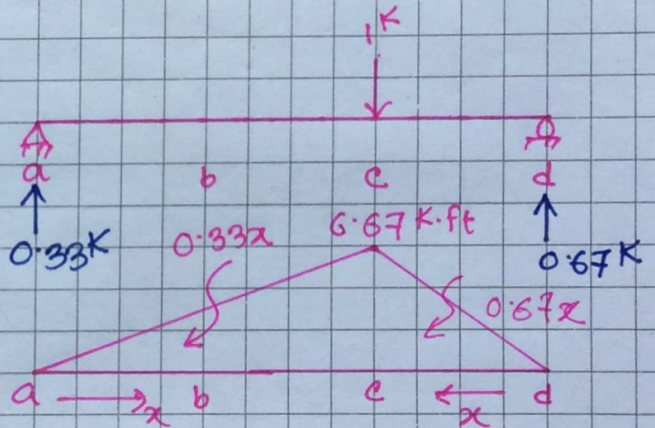 1K
a b c d
0.33K 0.33x 6.67 K.ft 0.67K
0.67x
a x b c x d